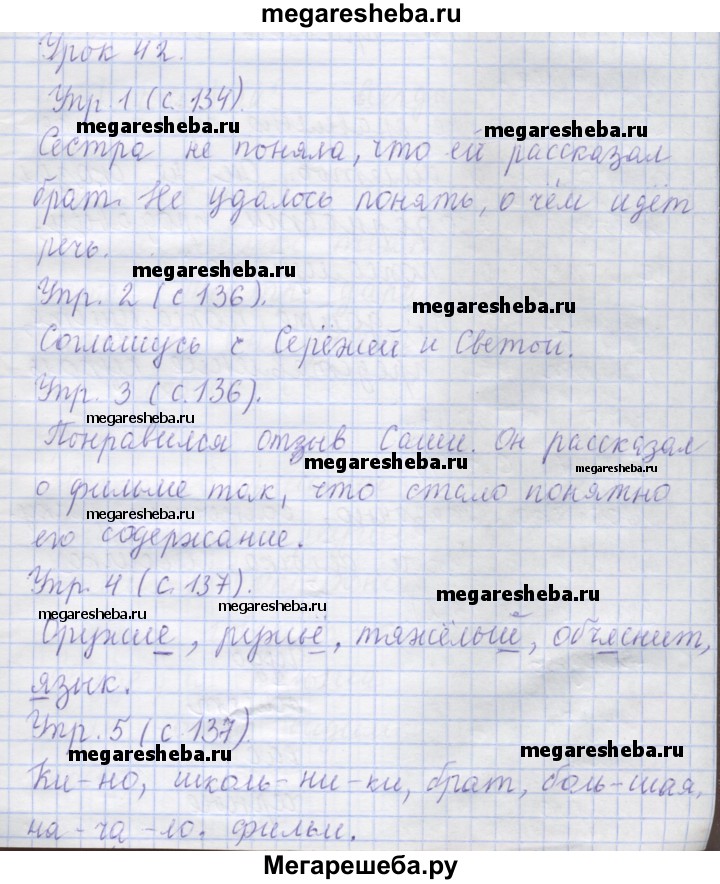 megaresheba.ru
Урок 42.
Упр 1 (с. 134).
megaresheba.ru
megaresheba.ru
Сестра не поняла, что ей рассказал
брат. Не удалось понять, о чём идёт
речь.
megaresheba.ru
Упр. 2 (с 136).
megaresheba.ru
Соглашусь с Серёжей и Светой.
Упр. 3 (с. 136).
megaresheba.ru
Понравился отзыв Саши. Он рассказал
megaresheba.ru
megaresheba.ru
о фильме так, что стало понятно
megaresheba.ru
его содержание.
Упр. 4 (с. 137).
megaresheba.ru
megaresheba.ru
megaresheba.ru
Оружие, ружьё, тяжёлый, объяснит,
язык.
Упр. 5 (с 137)
megaresheba.ru
megaresheba.ru
Ки-но, школь-ни-ки, брат, боль-шая,
на-ча-ло. фильм.
Мегарешеба.ру